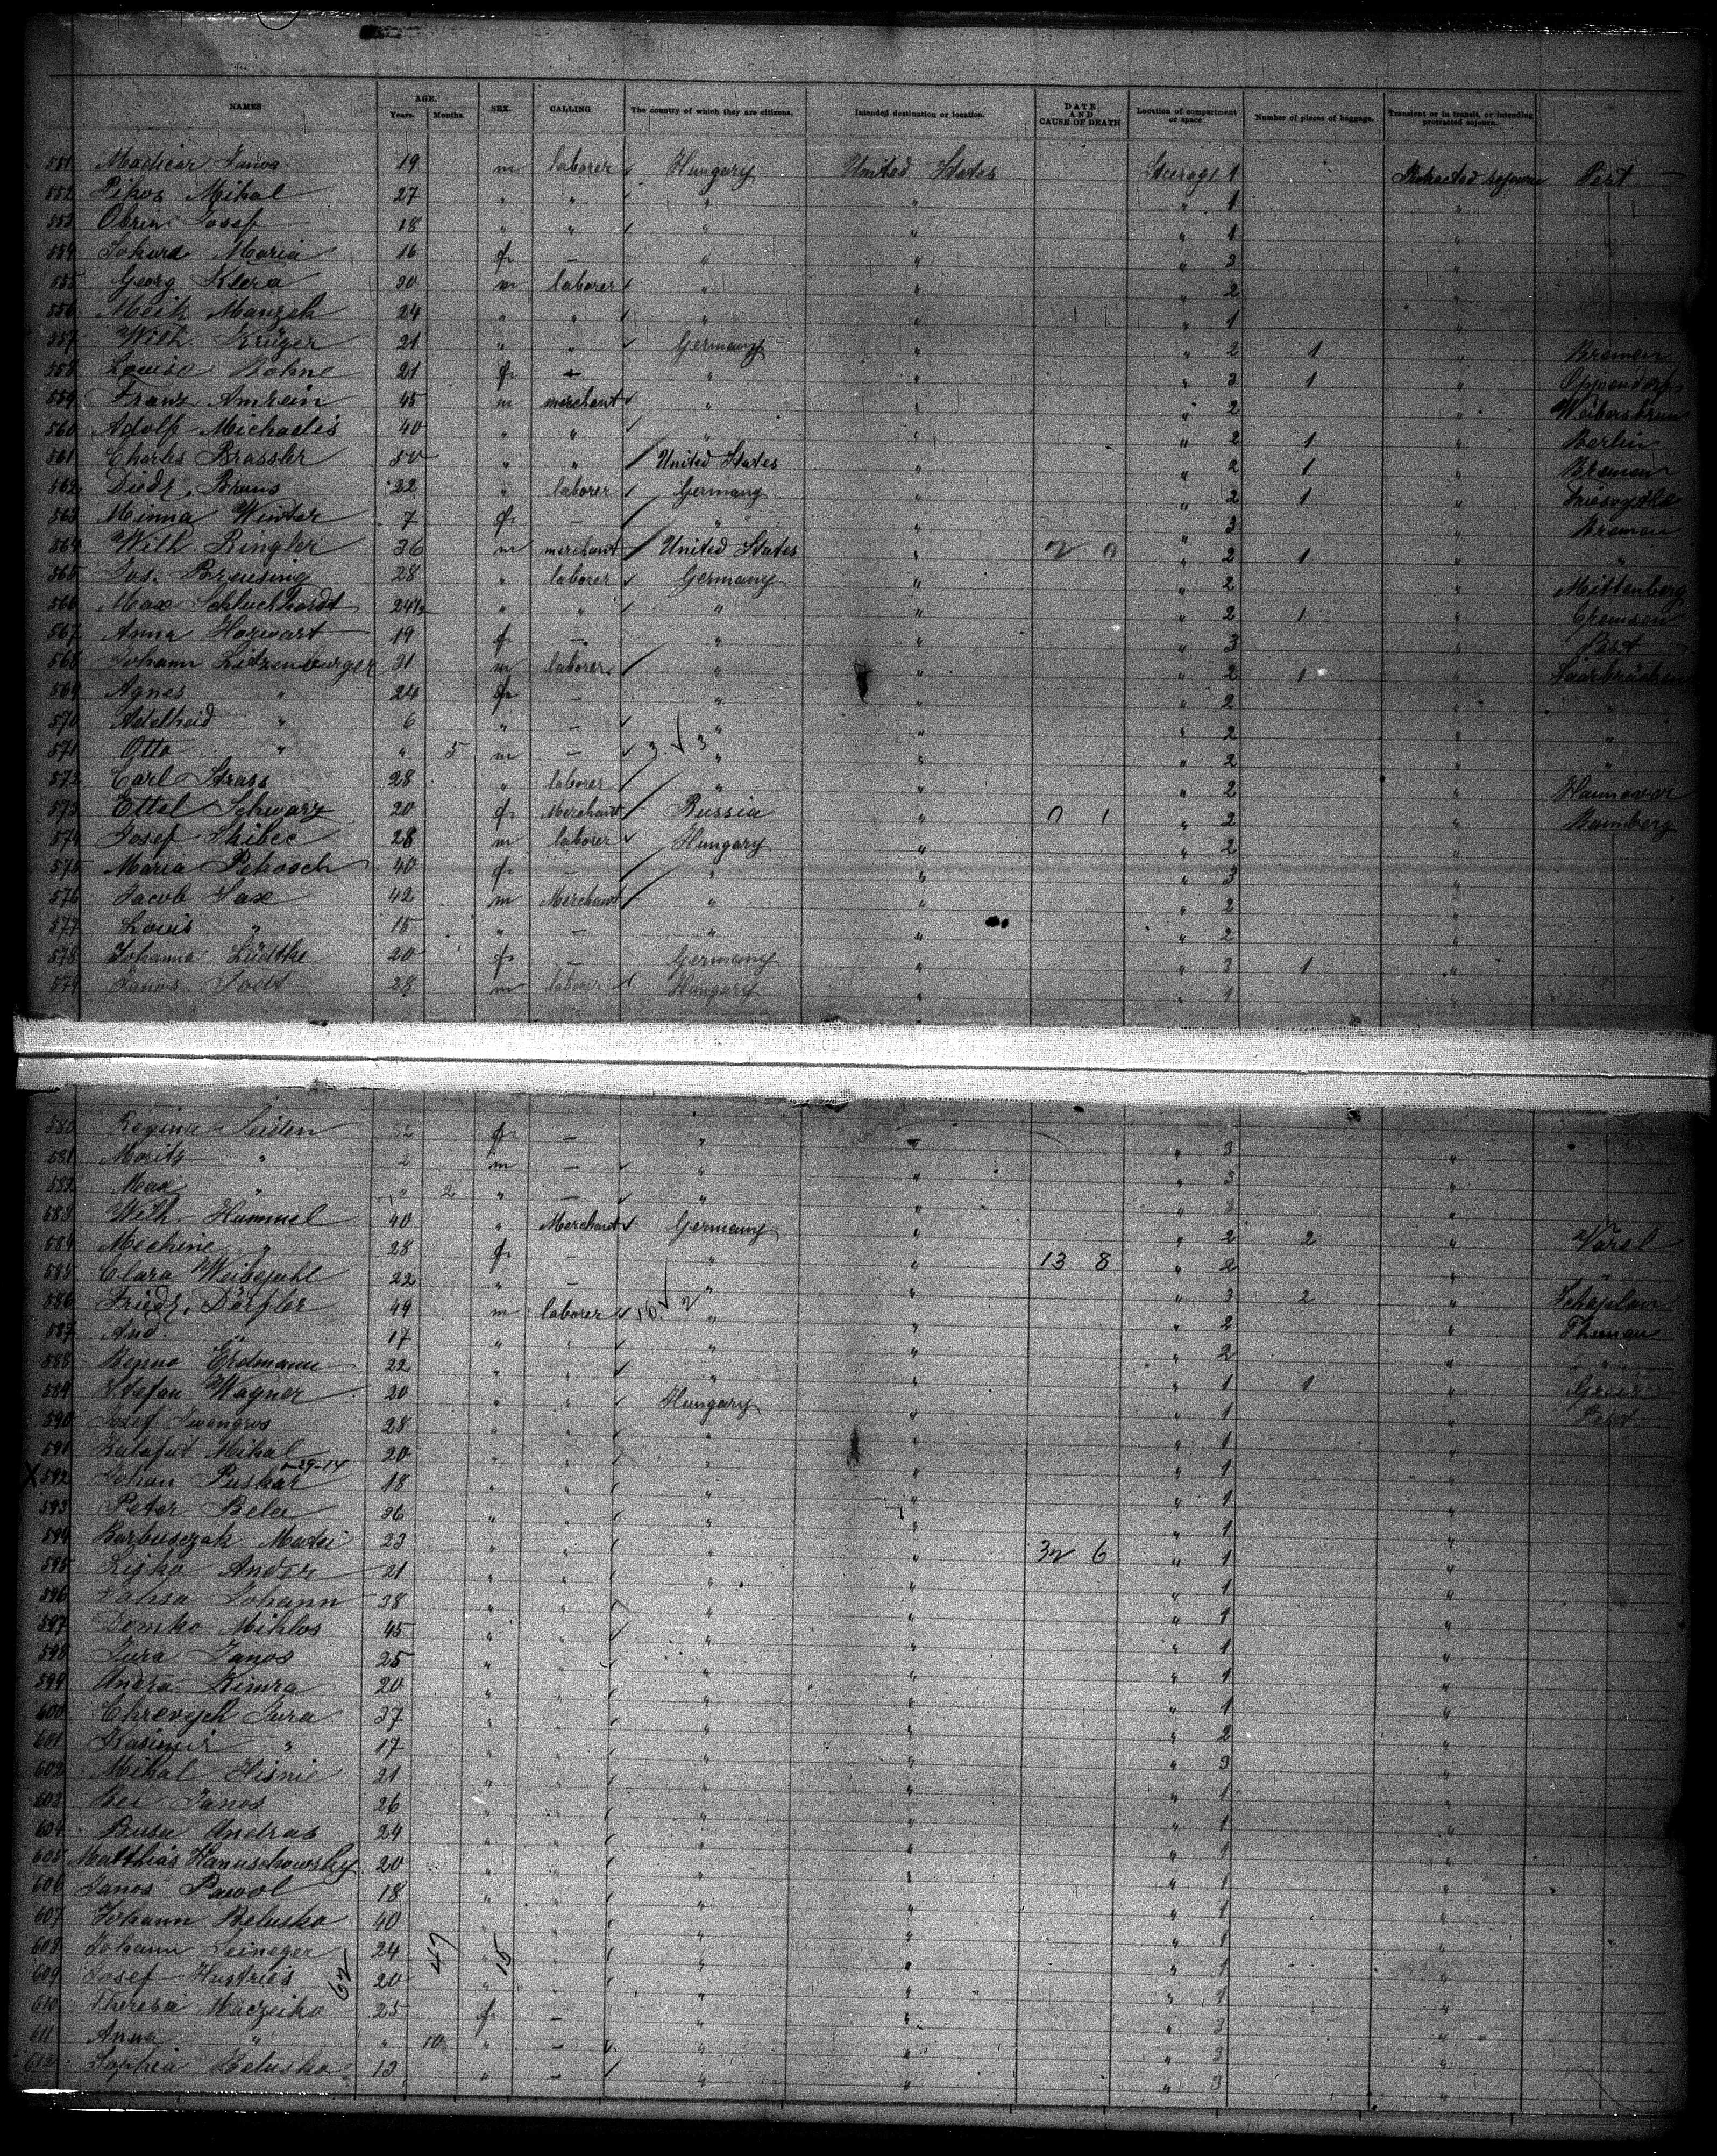 NAMES AGE. Years. Months. SEX. CALLING The country of which they are citizens. Intended destination or location. DATE AND CAUSE OF DEATH Location of compartment or space Number of pieces of baggage. Transient or in transit, or intending protracted sojourn.
551 Madicar Janos 19 m laborer Hungary United States Steerage 1 Protracted sojourn Pest
552 Pikos Mihal 27 " " " " " 1 "
553 Obrin Josef 18 " " " " " 1 "
554 Maria 16 f – " " " 3 "
555 Georg Klera 30 m laborer " " " 2
556 Meik Manzek 24 " " " " " 1 "
557 Wilh. Krüger 21 " " Germany " " 2 1 " Bremen
558 Louise Bohne 21 f – " " " 3 1 " Oppendorf
559 Franz Amrein 45 m merchant " " " 2 " Weibersbrunn
560 Adolf Michaelis 40 " " " " " 2 1 " Berlin
561 Charles Brassler 50 " " United States " " 2 1 " Bremen
562 Diedr. Bruns 22 " laborer Germany " " 2 1 " Friesoythe
563 Minna Winter 7 f – " " " 3 " Bremen
564 Wilh. Ringler 36 m merchant United States " 2 0 " 2 1 " "
565 Jos. Breusing 28 " laborer Germany " " 2 " Miltenberg
566 Max Schluchhardt 24½ " " " " " 2 1 "
567 Anna Horwart 19 f – " " " 3 " Pest
568 Johann Litzenburger 31 m laborer " " " 2 1 " Saarbrücken
569 Agnes " 24 f – " " " 2 " "
570 Adelheid " 6 " – " " " 2 " "
571 Otto " " 5 m – 3 √ 3 " " " 2 " "
572 Carl Strass 28 " laborer " " " 2 " Hannover
573 Ettel Schwarz 20 f Merchant Russia " 0 1 " 2 " Bamberg
574 Josef Skibec 28 m laborer Hungary " " 2 "
575 Maria Pekosch 40 f – " " " 3 "
576 Jacob Sax 42 m Merchant " " " 2 "
577 Louis " 15 " – " " " 2 "
578 Johanna Lüdtke 20 f – Germany " " 3 1 "
579 Janos Todt 28 m laborer Hungary " " 1 "
580 Regina Seiden f – " " " 3
581 Moritz " 2 m – " " " 3 "
582 Max " " 2 " – " " " "
583 Wilh. Hummel 40 " Merchant Germany " " 2 2 " Varel
584 Mechine " 28 f – " " 13 8 " 2 " "
585 Clara Weibezahl 22 " – " " " 3 2 "
586 Friedr. Dörfler 49 m laborer 16 √ 2 " " " 2 " Thurnau
587 And. " 17 " " " " " 2 " "
588 Benno Erdmann 22 " " " " " 1 1 "
589 Stefan Wagner 20 " " Hungary " " 1 " Pest
590 Josef 28 " " " " " 1 "
591 Kalafut Mihal 20 " " " " " 1 "
X 592 Johan Puskar 2-29-14 18 " " " " " 1 "
593 Peter Bela 36 " " " " " 1 "
594 Barbusczak Matei 23 " " " " 32 6 " 1 "
595 Lisko Ander 21 " " " " " 1 "
596 Johann 38 " " " " " 1 "
597 Domko Miklos 45 " " " " " 1 "
598 Jura Janos 25 " " " " " 1 "
599 Andra Kimra 20 " " " " " 1 "
600 Jura 37 " " " " " 2 "
601 Kasimir " 17 " " " " " 3 "
602 Mihal Hisnie 21 " " " " " 1 "
603 Janos 26 " " " " " 1 "
604 Busa Andras 24 " " " " " 1 "
605 Matthias Hanuschowsky 20 " " " " " 1 "
606 Janos Pawol 18 " " " " " 1 "
607 Johann Beluska 40 " " " " " 1 "
608 Johann Seineger 24 " " " " " 1 "
609 Josef Hustries 62 20 47 " 15 " " " " 1 "
610 Theresa Maczeiko 25 f – " " " 3 "
611 Anna " " 10 " – " " " 3 "
612 Sophia Beluska 13 " – " " " 3 "